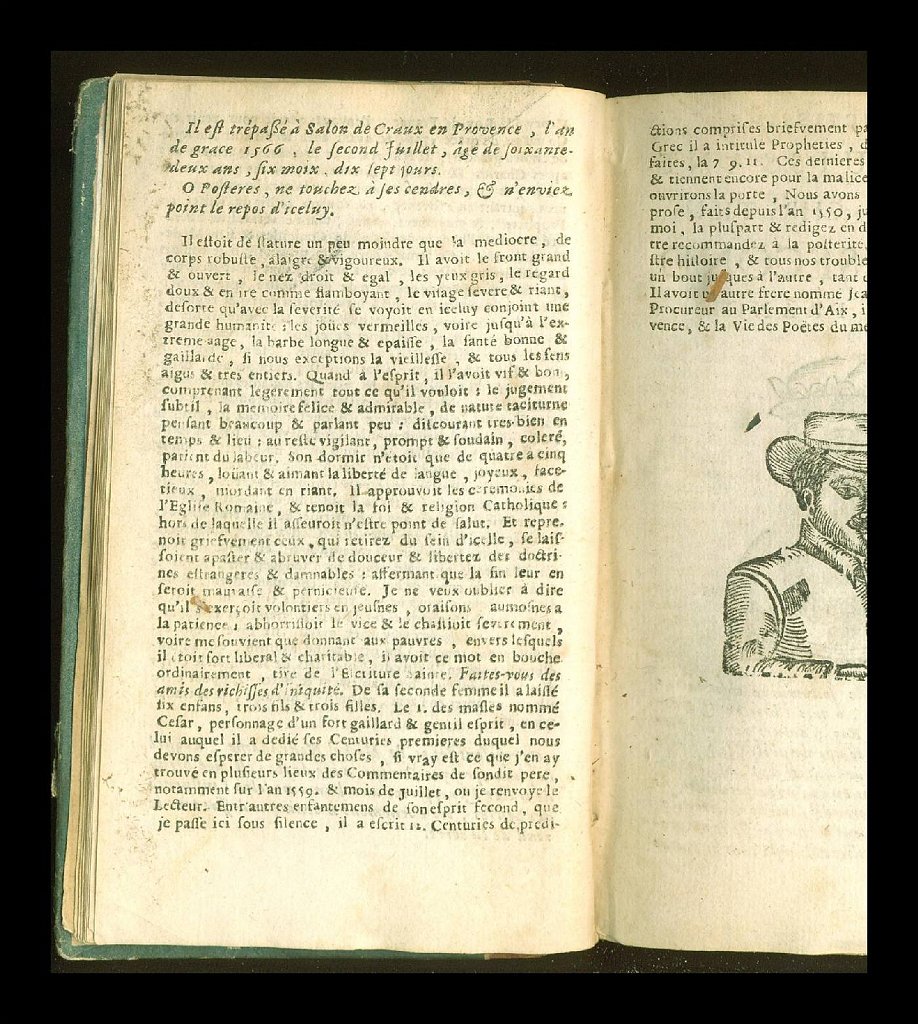 Il eſt trépaßé à Salon de Craux en Provence , l'an
de grace 1566 , le ſecond Juillet, âgé de ſoixante-
deux ans , ſix moix, dix ſept jours.
O Poſteres, ne touchez à ſes cendres, & n'enviez
point le repos d'iceluy.
Il eſtoit de ſtature un peu moindre que la mediocre, de
corps robuſte, alaigre & vigoureux. Il avoit le front grand
& ouvert , le nez droit & egal , les yeux gris, le regard
doux & en ire comme flamboyant, le viſage ſevere & riant,
deſorte qu'avec la ſeverité ſe voyoit en iceluy conjoint une
grande humanité : les joües vermeilles, voire juſqu'à l'ex-
treme aage, la barbe longue & epaiſſe, la ſanté bonne &
gaillarde, ſi nous exceptions la vieilleſſe , & tous les ſens
aigus & tres entiers. Quand à l'eſprit, il l'avoit vif & bon,
comprenant legerement tout ce qu'il vouloit : le jugement
ſubtil , la memoire felice & admirable, de nature taciturne
penſant beaucoup & parlant peu : diſcourant tres-bien en
temps & lieu : au reſte vigilant, prompt & ſoudain, coleré,
patient du labeur. Son dormir n'étoit que de quatre a cinq
heures, loüant & aimant la liberté de langue, joyeux, face-
tieux , mordant en riant. Il approuvoit les ceremonies de
l'Egliſe Romaine, & tenoit la foi & religion Catholique :
hors de laquelle il aſſeuroit n'eſtre point de ſalut. Et repre-
noit griefvement ceux, qui retirez du ſein d'icelle, ſe laiſ-
ſoient apaſter & abruver de douceur & libertez des doctri-
nes eſtrangeres & damnables : affermant que la fin leur en
ſeroit mauvaiſe & pernicieuſe. Je ne veux oublier à dire
qu'il s'exerçoit volontiers en jeuſnes , oraiſons , aumoſnes a
la patience : abhorriſſoit le vice & le chaſtioit ſeverement ,
voire me ſouvient que donnant aux pauvres , envers leſquels
il étoit fort liberal & charitable, il avoit ce mot en bouche
ordinairement , tiré de l'Ecriture Sainte. Faites-vous des
amis des richeſſes d'iniquité. De ſa ſeconde femme il a laiſſé
ſix enfans, trois fils & trois filles. Le 1. des maſles nommé
Ceſar, perſonnage d'un fort gaillard & gentil eſprit, en ce-
lui auquel il a dedié ſes Centuries premieres duquel nous
devons eſperer de grandes choſes , ſi vray eſt ce que j'en ay
trouvé en pluſieurs lieux des Commentaires de ſondit pere,
notamment ſur l'an 1559. & mois de Juillet, ou je renvoye le
Lecteur. Entr'autres enfantemens de ſon eſprit fecond, que
je paſſe ici ſous ſilence , il a eſcrit 12. Centuries de predi-
ctions compriſes briefvement
Grec il a intitulé Propheties ,
faites, la 7 9. 11. Ces dernieres
& tiennent encore pour la malice
ouvrirons la porte , Nous avons
proſe , faits depuis l'an 1550,
moi , la pluſpart & redigez en
tre recommandez à la poſterité
ſtre hiſtoire , & tous nos trouble
un bout juſques à l'autre , tant
Il avoit un autre frere nommé
Procureur au Parlement d'Aix,
vence, & la Vie des Poëtes du